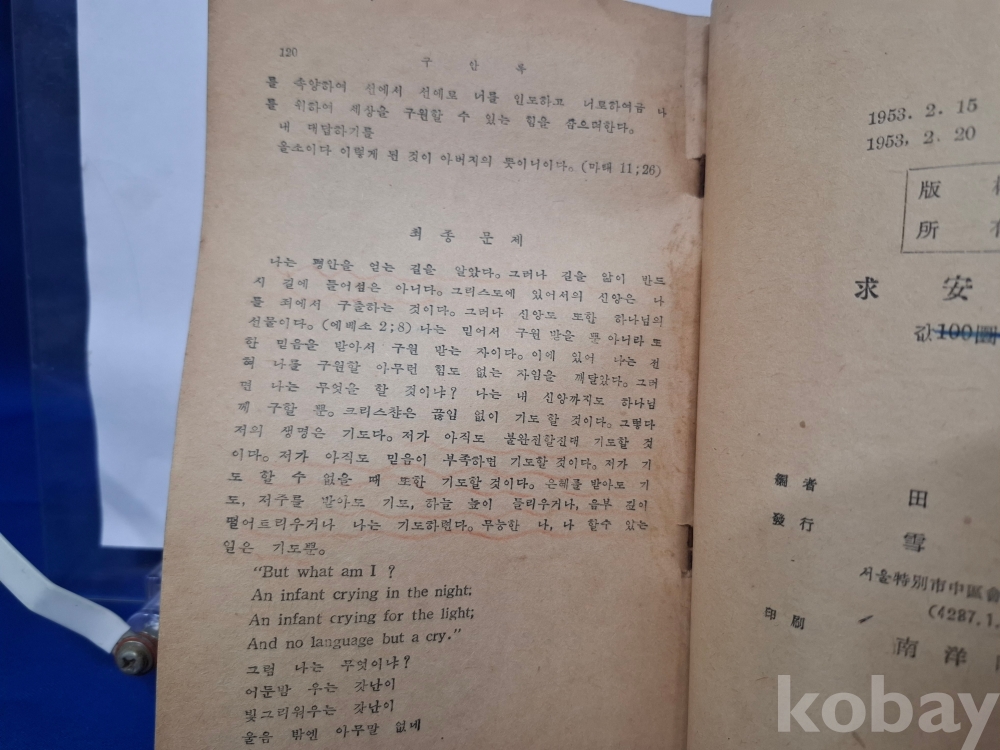 120
구 안 록
를 속양하여 선에서 선에로 너를 인도하고 너로하여금 나
를 위하여 세상을 구원할 수 있는 힘을 줌으려한다。
내 대답하기를
올소이다 이렇게 된 것이 아버지의 뜻이니이다。(마태 11;26)
최 종 문 제
나는 평안을 얻는 길을 알았다。그러나 길을 앎이 반드
시 길에 들어섬은 아니다。그리스도에 있어서의 신앙은 나
를 죄에서 구출하는 것이다。그러나 신앙도 또한 하나님의
선물이다。(에베소 2;8) 나는 믿어서 구원 받을 뿐 아니라 또
한 믿음을 받아서 구원 받는 자이다。이에 있어 나는 전
혀 나를 구원할 아무런 힘도 없는 자임을 깨달았다。그러
면 나는 무엇을 할 것이냐? 나는 내 신앙까지도 하나님
께 구할 뿐。크리스챤은 끊임 없이 기도 할 것이다。그렇다
저의 생명은 기도다。저가 아직도 불완전할진대 기도할 것
이다。저가 아직도 믿음이 부족하면 기도할 것이다。저가 기
도 할 수 없을 때 또한 기도할 것이다。은혜를 받아도 기
도, 저주를 받아도 기도, 하늘 높이 들리우거나, 음부 깊이
떨어트리우거나 나는 기도하련다。무능한 나, 나 할수 있는
일은 기도뿐。
"But what am I ?
An infant crying in the night;
An infant crying for the light;
And no language but a cry."
그럼 나는 무엇이냐?
어둔밤 우는 갓난이
빛그리워우는 갓난이
울음 밖엔 아무말 없네
1953. 2. 15
1953, 2. 20
版
所
求 安
값 100圜
編 者 田
發 行 雪
서울特別市中區會
(4287.1.
印 刷 南 洋
kobay